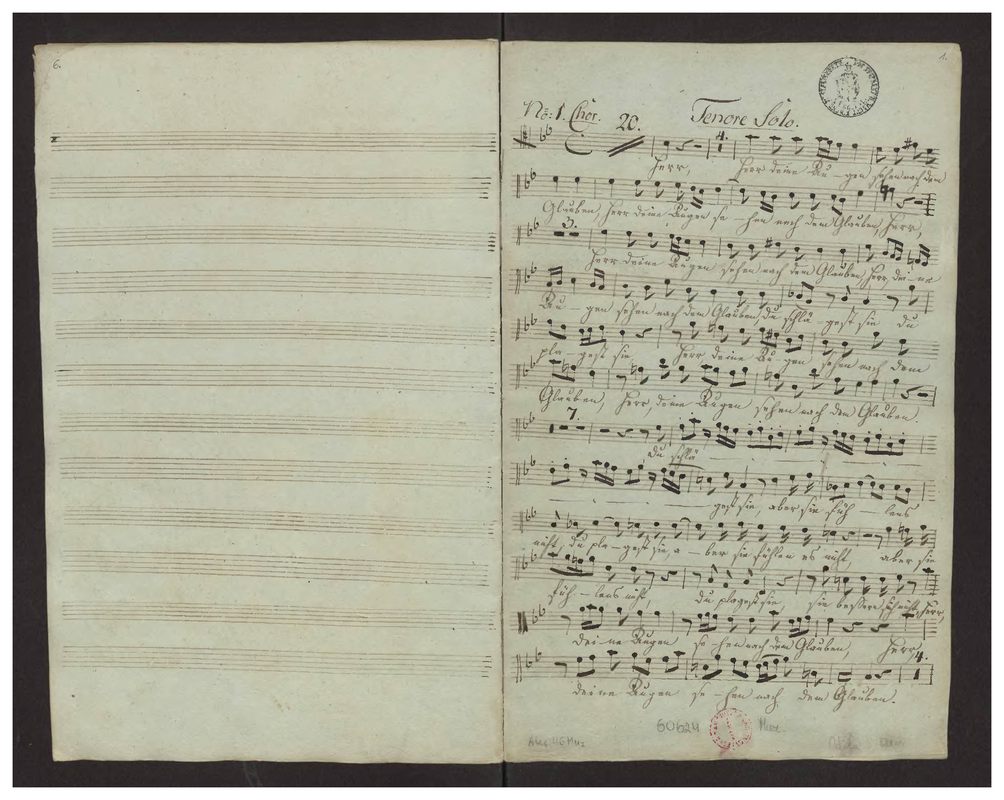 6.
1.
No: 1. Chor. 20. Tenore Solo.
4.
Herr, Herr deine Au - gen sehen nach dem
Glauben, Herr deine Augen se - hen nach dem Glauben, Herr,
3.
Herr deine Augen sehen nach dem Glauben, Herr, dei - ne
Au - gen sehen nach dem Glauben, du schlä - gest sie du
pla - gest sie Herr deine Au - gen sehen nach dem
Glauben, Herr, deine Augen sehen nach dem Glauben.
7.
du schlä
gest sie, aber sie füh - lens
nicht, du pla - gest sie, a - ber sie fühlen es nicht, aber sie
füh - lens nicht, du plagest sie, sie bessern sich nicht, Herr,
deine Augen se hen nach dem Glauben, Herr,
4.
deine Augen se - hen nach dem Glauben.
60624